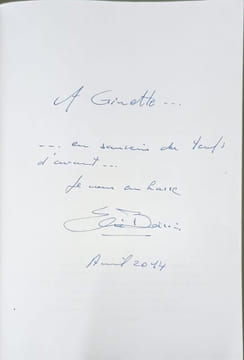 A Ginette ...
... en souvenir du temps
d'avant ...
Je vous embrasse
Avril 2014